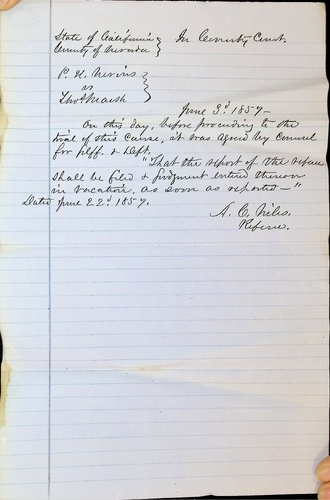 State of California } In County Court.
County of Nevada
P. H. Nevins }
vs
Thos Marsh
June 3d 1857—
On this day, before proceeding to the
trial of this cause, it was agreed by Counsel
for plff. & Deft.
"That the report of the referee
shall be filed & judgment entered thereon
in vacation, as soon as reported—"
Dated June 22d 1857.
A. C. Niles.
Referee.